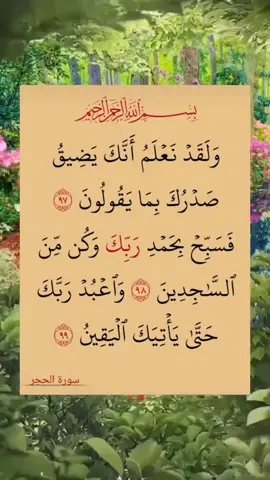 بِسْمِ اللَّهِ الرَّحْمَٰنِ الرَّحِيمِ
وَلَقَدۡ نَعۡلَمُ أَنَّكَ يَضِيقُ
صَدۡرُكَ بِمَا يَقُولُونَ ٩٧
فَسَبِّحۡ بِحَمۡدِ رَبِّكَ وَكُن مِّنَ
ٱلسَّٰجِدِينَ ٩٨ وَٱعۡبُدۡ رَبَّكَ
حَتَّىٰ يَأۡتِيَكَ ٱلۡيَقِينُ ٩٩
سورة الحجر